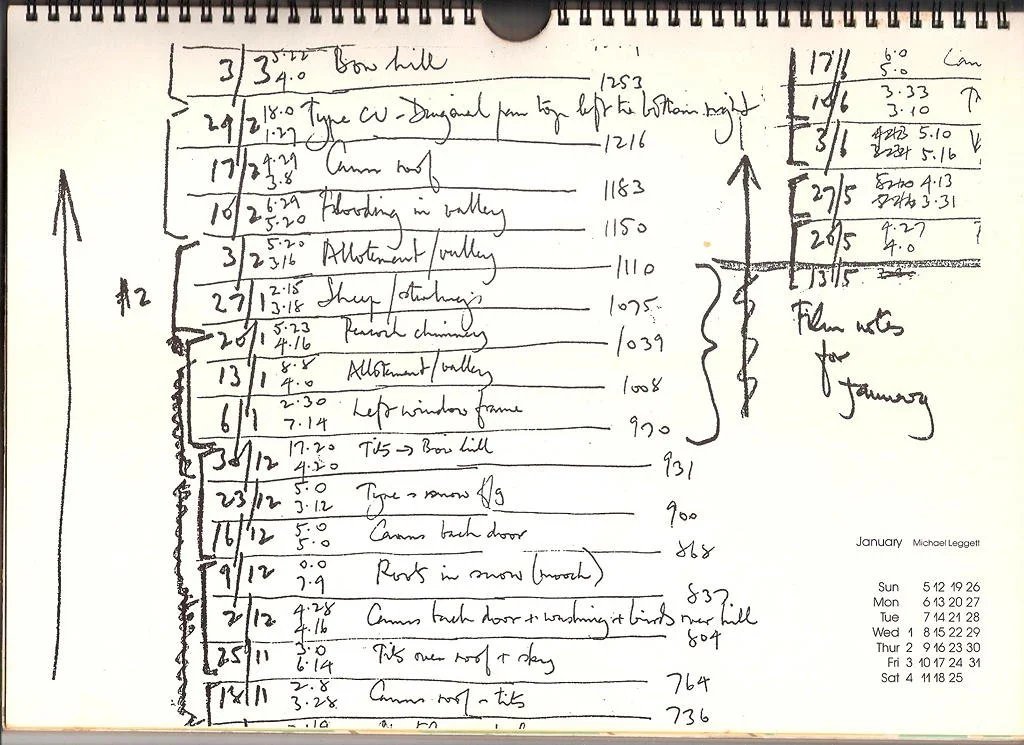 3/3 5.22 4.0 Bow hill
1253
24/2 18.0 1.27 Type CU - Diagonal pan top left to bottom right
1216
17/2 4.29 3.8 roof
1183
10/2 6.29 5.20 Flooding in valley
1150
3/2 5.20 3.16 Allotement/valley
1110
#2
27/1 2.15 3.18 Sheep/
1075
20/1 5.23 4.16 Peacock chimney
1039
13/1 8.8 4.0 Allotement/valley
1008
6/1 2.30 7.14 Left window frame
970
30/12 17.20 4.20 Tits → Bow hill
931
23/12 5.0 3.12 Type - snow
900
16/12 5.0 5.0 back door
868
9/12 0.0 7.9 in snow
837
2/12 4.28 4.16 back door + washing + birds over hill
804
25/11 3.0 6.14 Tits over roof + sky
764
18/11 2.8 3.28 roof - tits
736
17/6 6.0 5.0
10/6 3.33 3.10
3/6 5.10 5.16
27/5 4.13 3.31
20/5 4.27 4.0
13/5
Film notes
for
January
January Michael Leggett
Sun 5 12 19 26
Mon 6 13 20 27
Tue 7 14 21 28
Wed 1 8 15 22 29
Thur 2 9 16 23 30
Fri 3 10 17 24 31
Sat 4 11 18 25